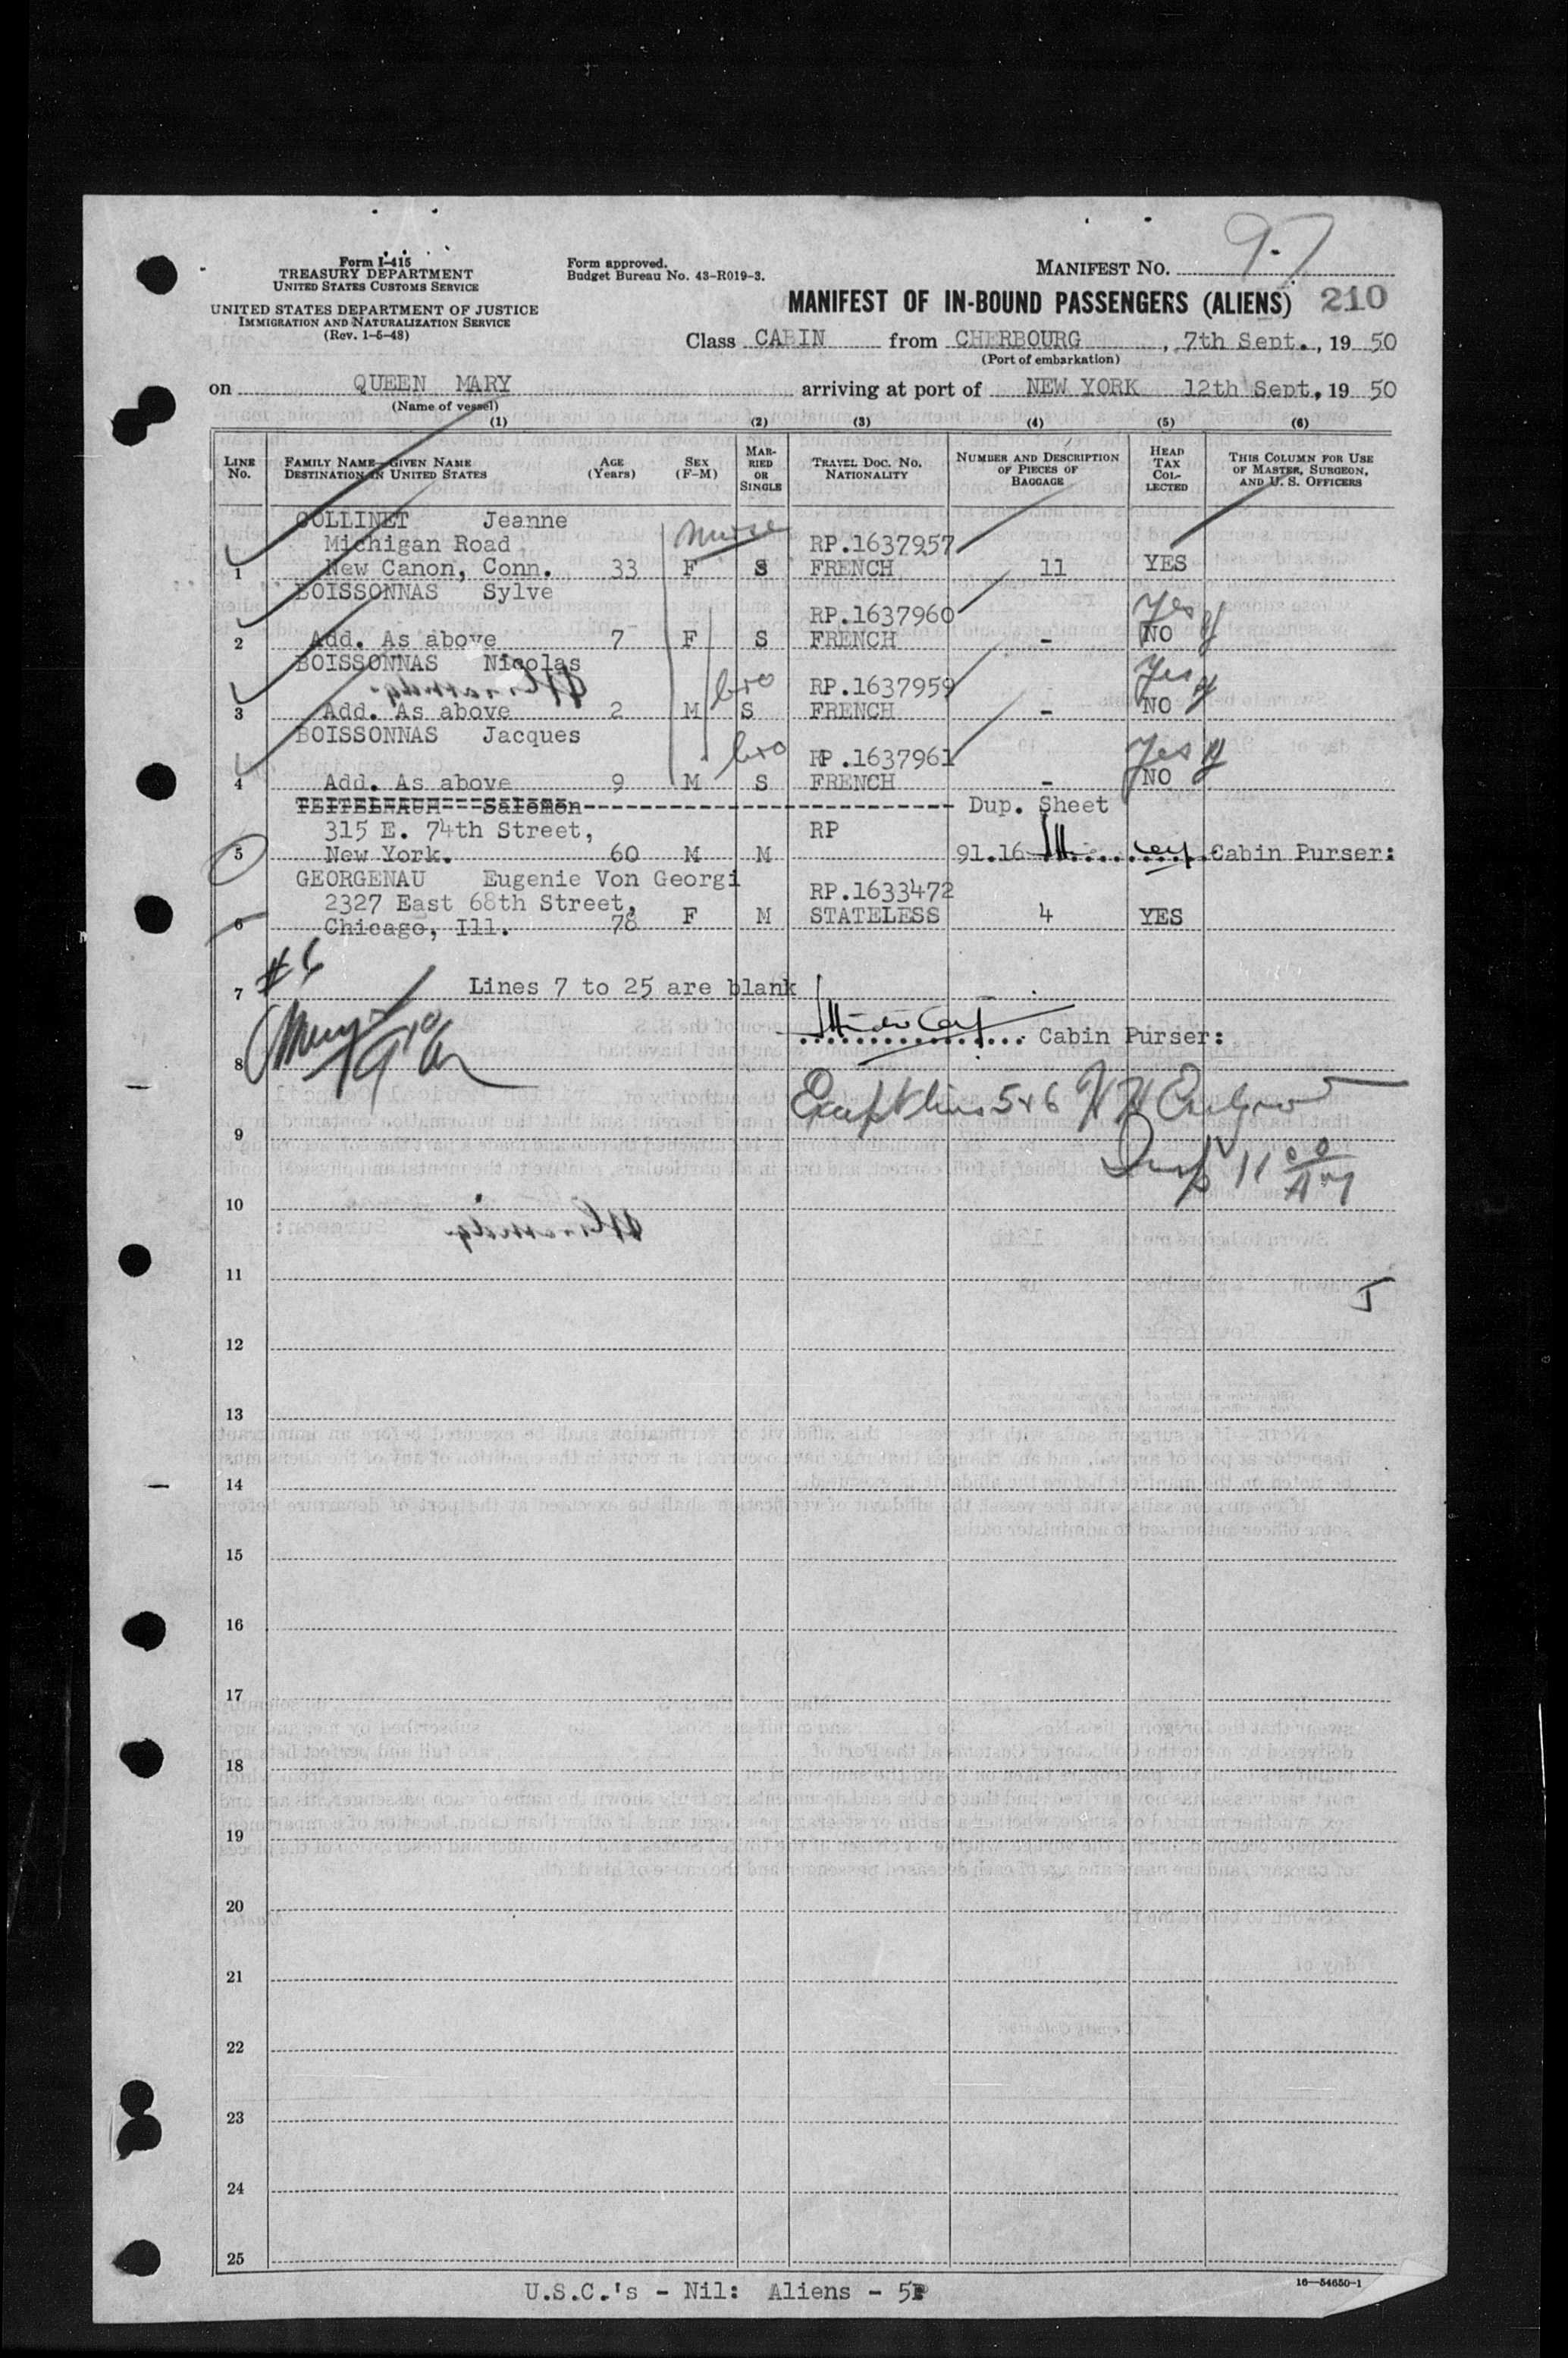 97
Form I-415
TREASURY DEPARTMENT
UNITED STATES CUSTOMS SERVICE
UNITED STATES DEPARTMENT OF JUSTICE
IMMIGRATION AND NATURALIZATION SERVICE
(Rev. 1-5-48)
Form approved.
Budget Bureau No. 43-R019-3.
MANIFEST NO.
MANIFEST OF IN-BOUND PASSENGERS (ALIENS) 210
Class CABIN from CHERBOURG, 7th Sept., 1950
(Port of embarkation)
on QUEEN MARY arriving at port of NEW YORK 12th Sept, 1950
(Name of vessel)
(1) (2) (3) (4) (5) (6)
LINE No. FAMILY NAME—GIVEN NAME DESTINATION IN UNITED STATES AGE (Years) SEX (F-M) MARRIED OR SINGLE TRAVEL DOC. NO. NATIONALITY NUMBER AND DESCRIPTION OF PIECES OF BAGGAGE HEAD TAX COLLECTED THIS COLUMN FOR USE OF MASTER, SURGEON, AND U. S. OFFICERS
COLLINET Jeanne nurse
Michigan Road RP.1637957
1 New Canon, Conn. 33 F S FRENCH 11 YES
BOISSONNAS Sylve
RP.1637960 Yes
2 Add. As above 7 F S FRENCH - NO
BOISSONNAS Nicolas
bro RP.1637959 Yes
3 Add. As above 2 M S FRENCH - NO
BOISSONNAS Jacques
bro RP.1637961 Yes
4 Add. As above 9 M S FRENCH - NO
TEITELBAUM Salomon Dup. Sheet
315 E. 74th Street, RP
5 New York. 60 M M 91.16 Cabin Purser:
GEORGENAU Eugenie Von Georgi
2327 East 68th Street, RP.1633472
6 Chicago, Ill. 78 F M STATELESS 4 YES
#6
7 Lines 7 to 25 are blank
Cabin Purser:
8
Except lines 5 & 6
9
Insp 11 00 AM
10
11
12
13
14
15
16
17
18
19
20
21
22
23
24
25
16—54650-1
U.S.C.'s - Nil: Aliens - 5